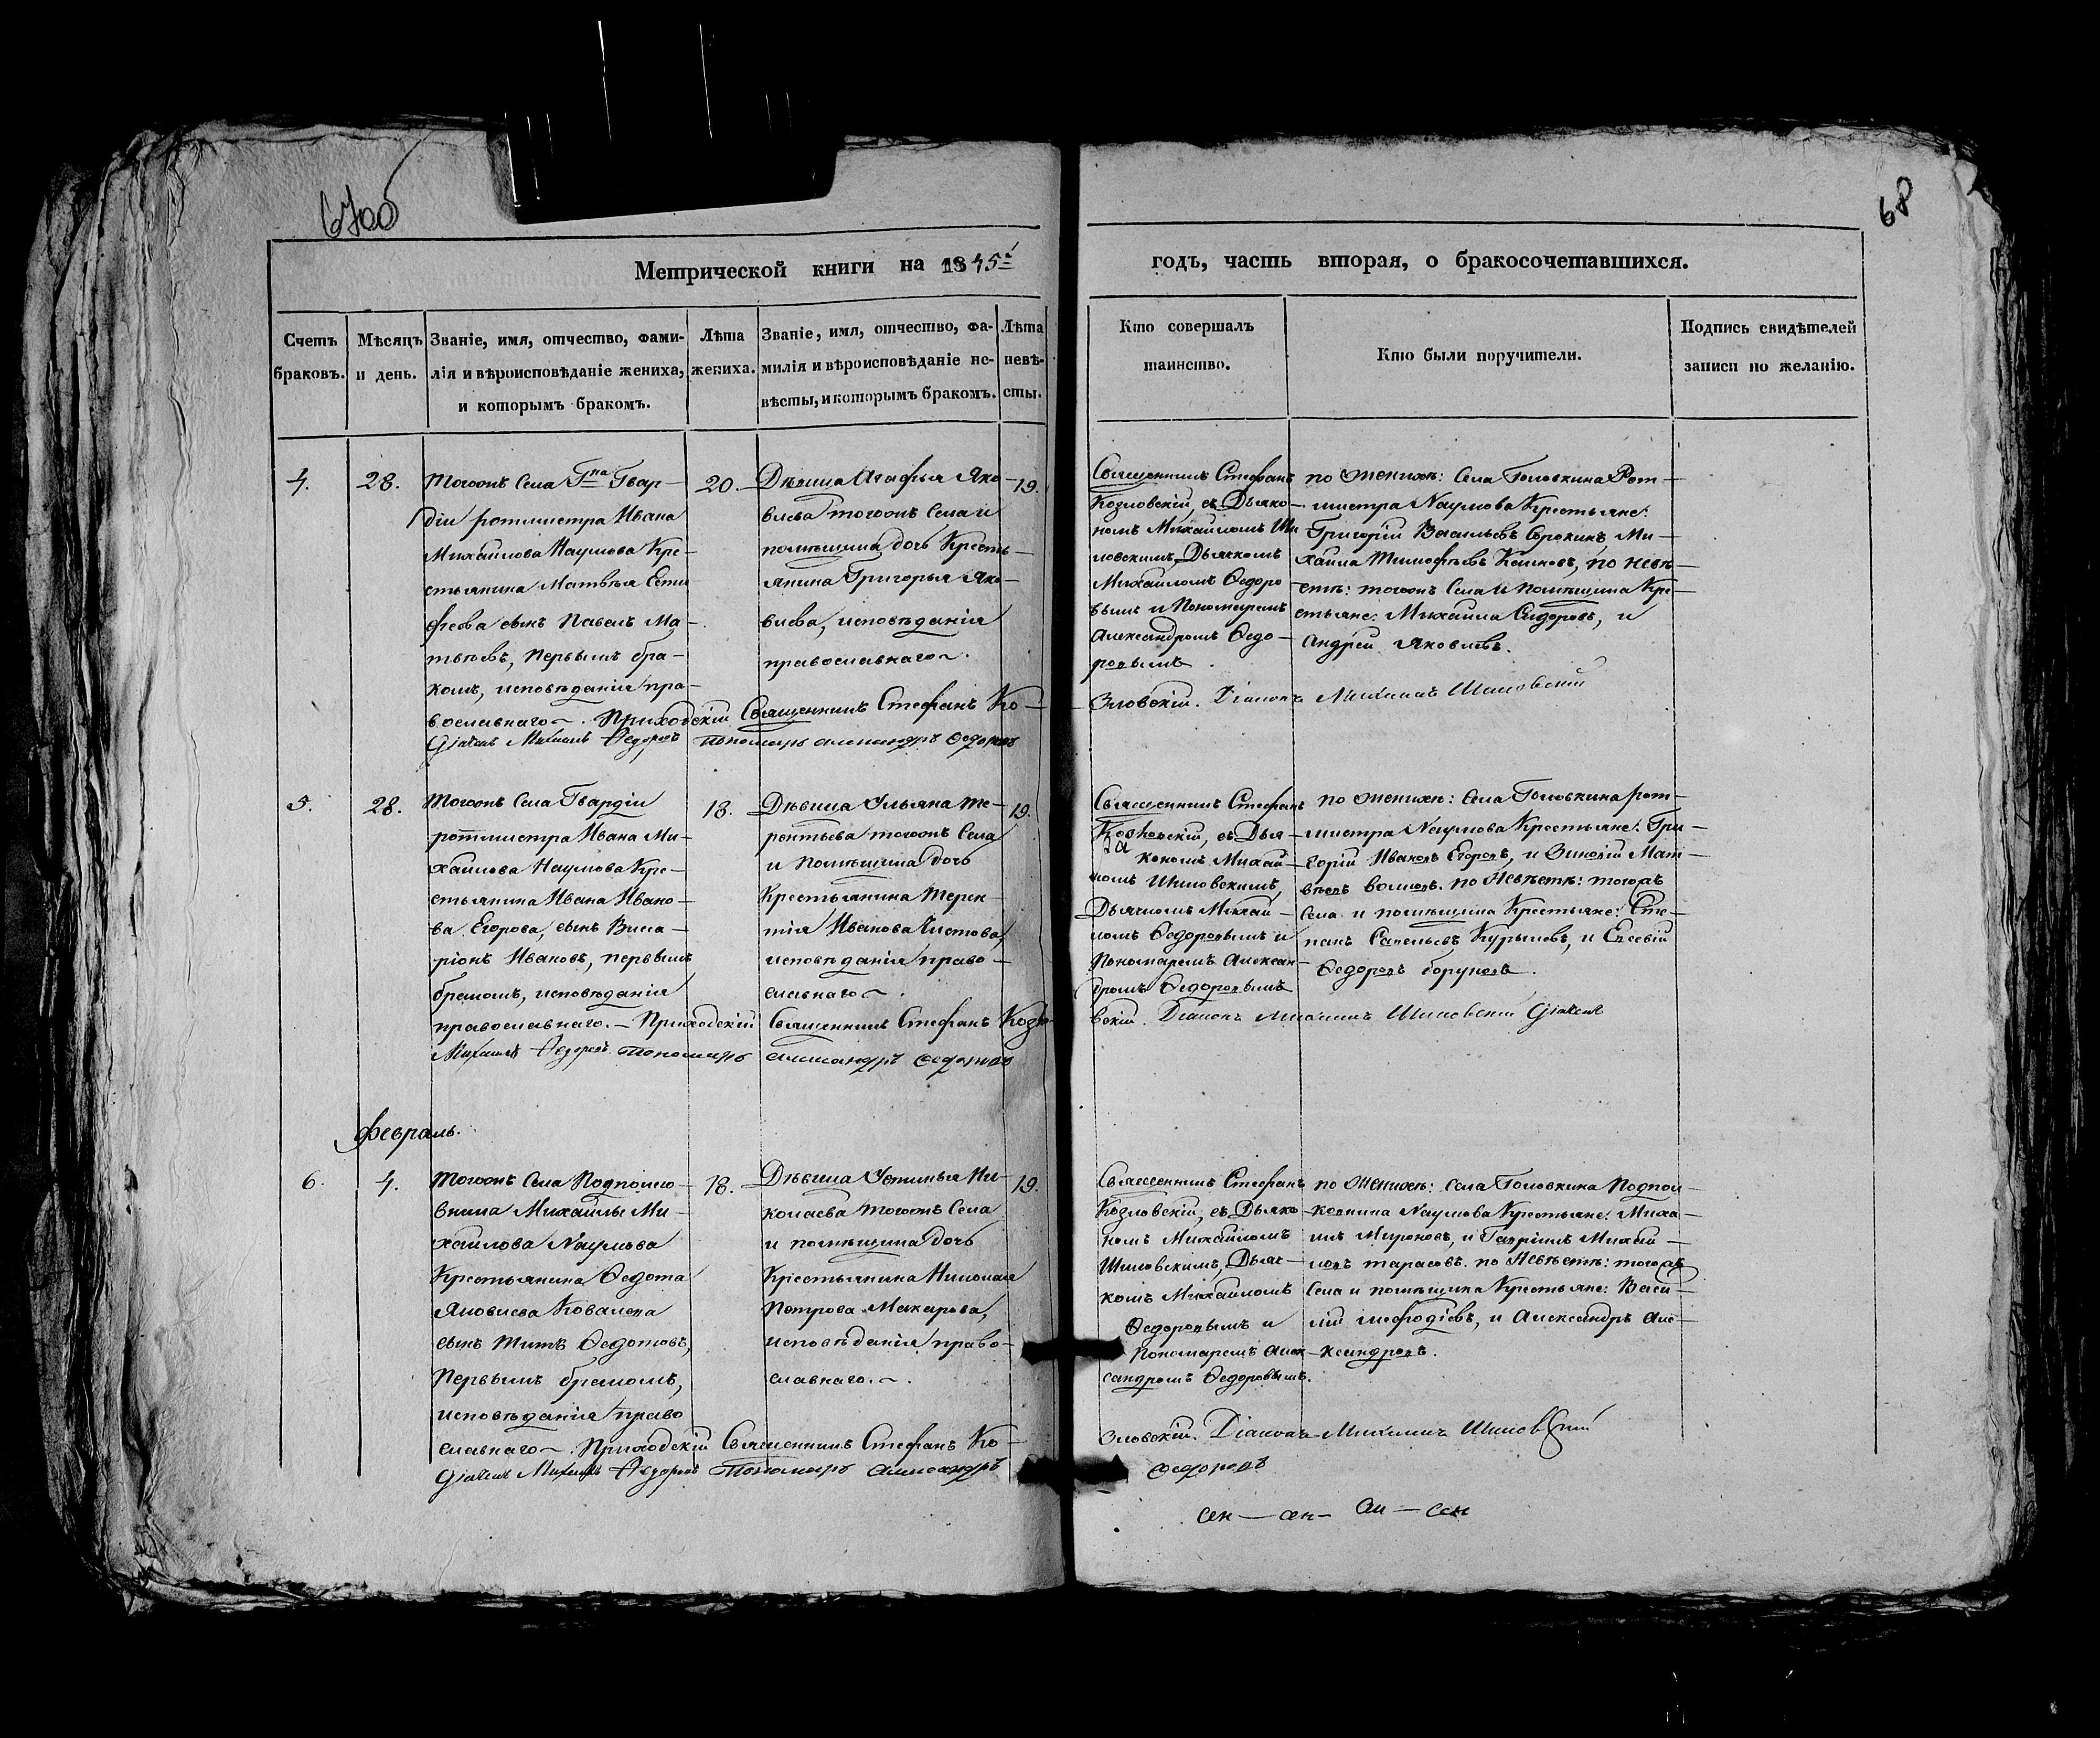 67об
68
Метрической книги на 1845й
годъ, часть вторая, о бракосочетавшихся.
Счетъ браковъ.
Мѣсяцъ и день.
Званіе, имя, отчество, фами-
лія и вѣроисповѣданіе жениха,
и которымъ бракомъ.
Лѣта жениха.
Званіе, имя, отчество, фа-
милія и вѣроисповѣданіе не-
вѣсты, и которымъ бракомъ.
Лѣта невѣ-
сты.
Кто совершалъ
таинство.
Кто были поручители.
Подпись свидѣтелей
записи по желанію.
4.
28.
Тогожъ Села Гна Гвар-
діи ротмистра Ивана
Михайлова Наумова Кре-
стьянина Матвѣя Епи
фѣева сынъ Павелъ Ма-
твѣевъ, первымъ бра-
комъ, исповѣданія пра-
вославнаго.
20.
Дѣвица Агафья Яко-
влева тогожъ Села и
помѣщика дочь Кресть-
янина Григорья Яко-
влева, исповѣданія
православнаго.
19.
Священникъ Стефанъ
Козловскій, съ Дьяко-
номъ Михаиломъ Ши
ловскимъ, Дьячкомъ
Михаиломъ Ѳедоро
вымъ и Пономаремъ
Александромъ Ѳедо-
ровымъ.
по женихѣ: Села Головкина Рот-
мистра Наумова Крестьяне:
Григорій Васильевъ Сорокинъ Ми-
хаила Тимофѣевъ Климовъ, по невѣ-
стѣ: тогожъ Села и помѣщика Кре-
стьяне: Михаила Сидоровъ, и
Андрей Яковлевъ.
Приходскій Священникъ Стефанъ Ко-
зловскій. Діаконъ Михаилъ Шиловскій
Дьячекъ Михаилъ Ѳедоровъ Пономарь Александръ Ѳедоровъ
5.
28.
Тогожъ Села Гвардіи
ротмистра Ивана Ми-
хайлова Наумова Кре-
стьянина Ивана Ивано-
ва Егорова, сынъ Висса-
ріонъ Ивановъ, первымъ
бракомъ, исповѣданія
православнаго.
18.
Дѣвица Ульяна Те-
рентьева тогожъ Села
и Помѣщика дочь
Крестьянина Терен-
тія Иванова Чистова,
исповѣданія право-
славнаго.
19.
Священникъ Стефанъ
Козловскій, съ Дья-
кономъ Михаи-
ломъ Шиловскимъ,
Дьячкомъ Михаи-
ломъ Ѳедоровымъ и
Пономаремъ Алексан-
дромъ Ѳедоровымъ
по женихѣ: Села Головкина рот-
мистра Наумова Крестьяне: Гри-
горій Ивановъ Егоровъ, и Зиновій Мат-
вѣевъ Волковъ. по Невѣстѣ: тогожъ
Села и помѣщика Крестьяне: Сте-
панъ Савельевъ Курылевъ, и Евсевій
Ѳедоровъ Боруновъ.
Приходскій Священникъ Стефанъ Козло-
вскій. Діаконъ Михаилъ Шиловскій Дьячекъ
Михаилъ Ѳедоровъ Пономарь Александръ Ѳедоровъ
Февраль.
6.
4.
Тогожъ Села Подполко-
вника Михайлы Ми-
хайлова Наумова
Крестьянина Ѳедота
Яковлева Ковалева
сынъ Титъ Ѳедотовъ,
Первымъ бракомъ,
исповѣданія право
славнаго.
18.
Дѣвица Устинья Ни-
колаева тогожъ Села
и помѣщика дочь
Крестьянина Николая
Петрова Макарова,
исповѣданія право-
славнаго.
19.
Священникъ Стефанъ
Козловскій, съ Дьяко-
номъ Михаиломъ
Шиловскимъ, Дьяч-
комъ Михаиломъ
Ѳедоровымъ и
Пономаремъ Алек-
сандромъ Ѳедоровымъ.
по женихѣ: Села Головкина Подпол-
ковника Наумова Крестьяне: Миха-
илъ Мироновъ, и Гавріилъ Михай-
ловъ Тарасовъ. по Невѣстѣ: тогожъ
Села и помѣщика Крестьяне: Васи-
лій Мефодіевъ, и Александръ Але-
ксандровъ.
Приходскій Священникъ Стефанъ Ко-
зловскій. Діаконъ Михаилъ Шиловскій
Дьячекъ Михаилъ Ѳедоровъ Пономарь Александръ
Ѳедоровъ